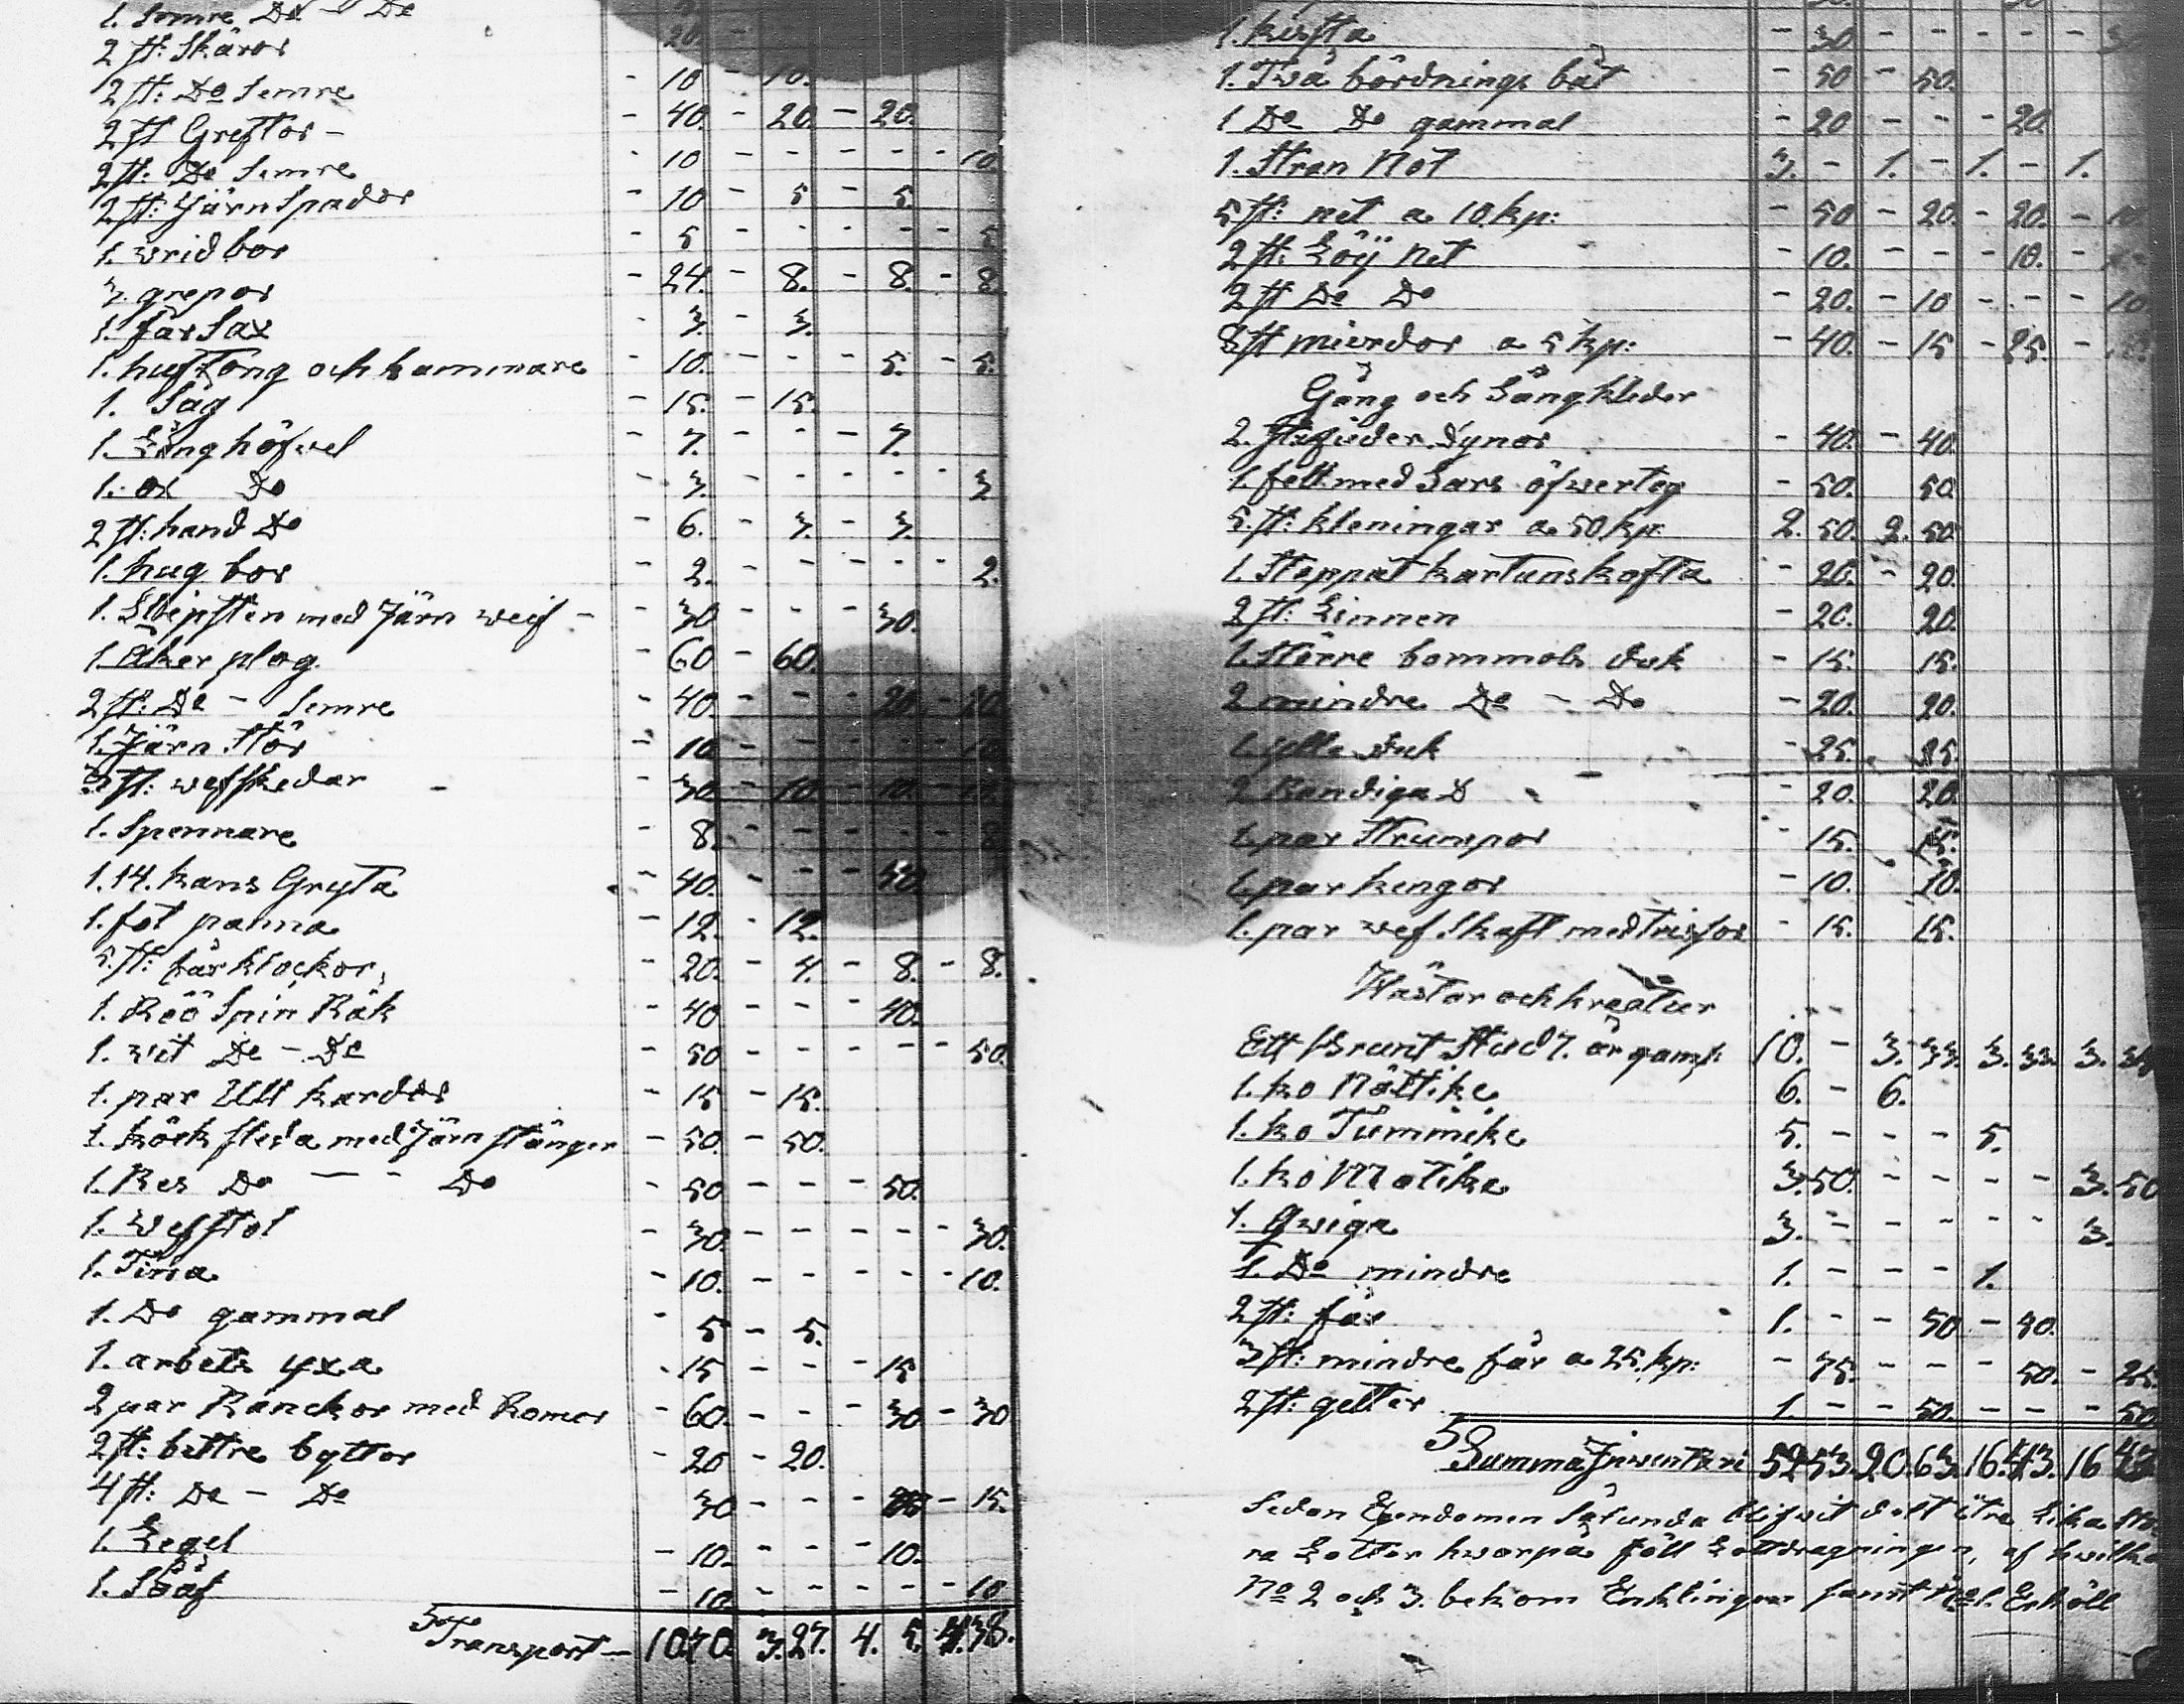 1. Semre Do - Do
2 st: Skäror 20. -
2 st: Do Semre - 10 - 10.
2 st Greftor - - 40. - 20. - 20.
2 st: Do Semre - 10 - - - - - 10.
2 st: Järn Spador - 10 - 5 - 5.
1. wrid bor - 5 - - - - - 5.
3. grepor - 24. - 8. - 8. - 8.
1. får Sax - 3. - 3.
1. huf Tong och hammare - 10. - - - 5. - 5.
1. Såg - 15. - 15.
1. Lång höfvel - 7. - - - 7.
1. Do - 3. - - - - - 3
2 st: hand Do - 6. - 3. - 3.
1. hug bor - 2. - - - - - 2.
1. Slipsten med Järn weif - - 30 - - - 30.
1. Åker plog - 60 - 60.
2 st: Do - Semre - 40. - - - 20. - 20.
1. Järn Stör - 10 - - - - - 10.
3 st: wefskedar - - 30. - 10. - 10. - 10.
1. Spennare - 8. - - - - - 8.
1. 14. kans Gryta - 40. - - - 40.
1. fot panna - 12. - 12.
5. st: får klockor, - 20. - 4. - 8. - 8.
1. Röö Spin Råk - 40 - - - 40.
1. wit Do - Do - 50 - - - - - 50.
1. par Ull kardor - 15 - 15.
1. körk sleda med Järn stänger - 50. - 50.
1. Res Do - - Do - 50 - - - 50.
1. Wefstol - 30. - - - - - 30.
1. Tina - 10. - - - - - 10.
1. Do gammal - 5 - 5.
1. arbets yxa - 15 - - - 15
2 par Ränckor med Romor - 60. - - - 30 - 30
2 st: bettre byttor - 20 - 20.
4 st: Do - Do 30 - - - 15 - 15.
1. Legel - 10. - - - 10.
1. Sååf - 10 - - - - - 10
Transport - 10.70. 3.27. 4. 5. 4.38.
1. kista - 30 - - - - - 30
1. Två bördnings båt - 50 - 50.
1 Do Do gammal - 20 - - - 20.
1. Stran Not 3. - 1. - 1. - 1.
5 st: nät a 10 kp: - 50 - 20. - 20. - 10
2 st: Löij Nät - 10. - - - 10. - - -
2 st Do Do - 20. - 10 - - - 10.
8 st mierdor a 5 kp: - 40. - 15 - 25. - - -
Gång och Sängkleder
2. st: fjäder dynor - 40. - 40.
1. fell med Sars öfwerteg - 50. 50.
5. st: kleningar a 50 kp: 2. 50. 2. 50.
1. Stoppat kartuns kofta - 20. - 20.
2 st: Linnen - 20. 20.
1. Större bommols duk - 15. 15.
2 mindre Do - Do - 20. 20.
1. ylle duk - 25. 25.
2 Randiga D - 20. 20.
1. par Strumpor - 15. 15.
1. par kengor - 10. 10.
1. par wef Skaft med trissor - 15. 15.
Hästar och kreatur
Ett Brunt Stod 7. år gam: 10. - 3. 33. 3. 33. 3. 34
1. ko Nättike 6. - 6.
1. ko Tummike 5. - - - 5.
1. ko Motike 3. 50. - - - - 3. 50
1. Qwiga 3. - - - - - 3.
1. Do mindre 1. - - - 1.
2 st: får 1. - - 50 - 50.
3 st: mindre får a 25. kp: - 75. - - - 50. - 25.
2 st: getter 1. - - 50. - - - 50
Summa Inventari 52 53. 20. 63. 16. 43. 16
Sedan Egendomen Sålunda blifwit delt i tre Lika Sto-
ra Lotter hwarpå föll Lottdragningen, af hwilka
No 2 och 3. bekom Enklingen samt No 1. Erhöll